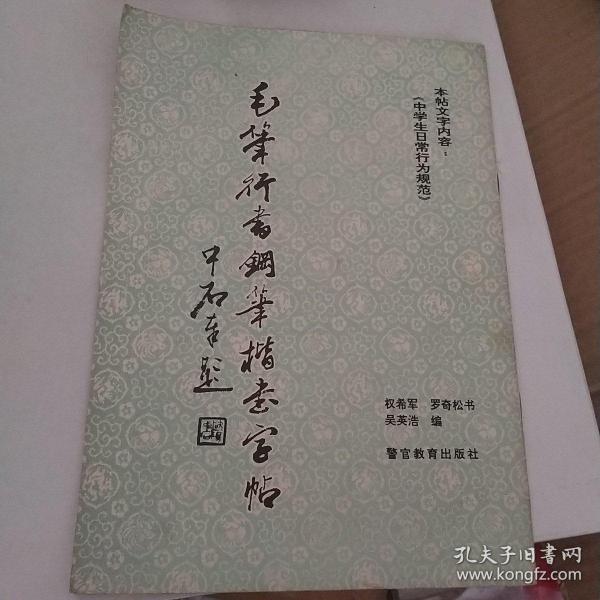 本帖文字内容：
《中学生日常行为规范》
毛筆行書鋼筆楷書字帖
中石奉题
权希军　罗奇松书
吴英浩　编
警官教育出版社
孔夫子旧书网
www.kongfz.com